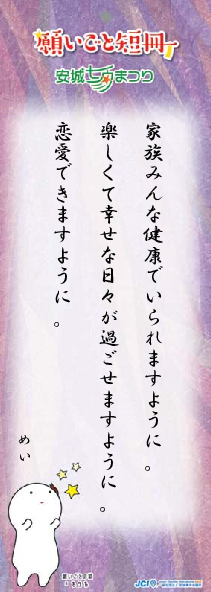 願いごと短冊
安城七夕まつり
家族みんな健康でいられますように。
楽しくて幸せな日々が過ごせますように。
恋愛できますように。
めい
願いごと短冊
JCI